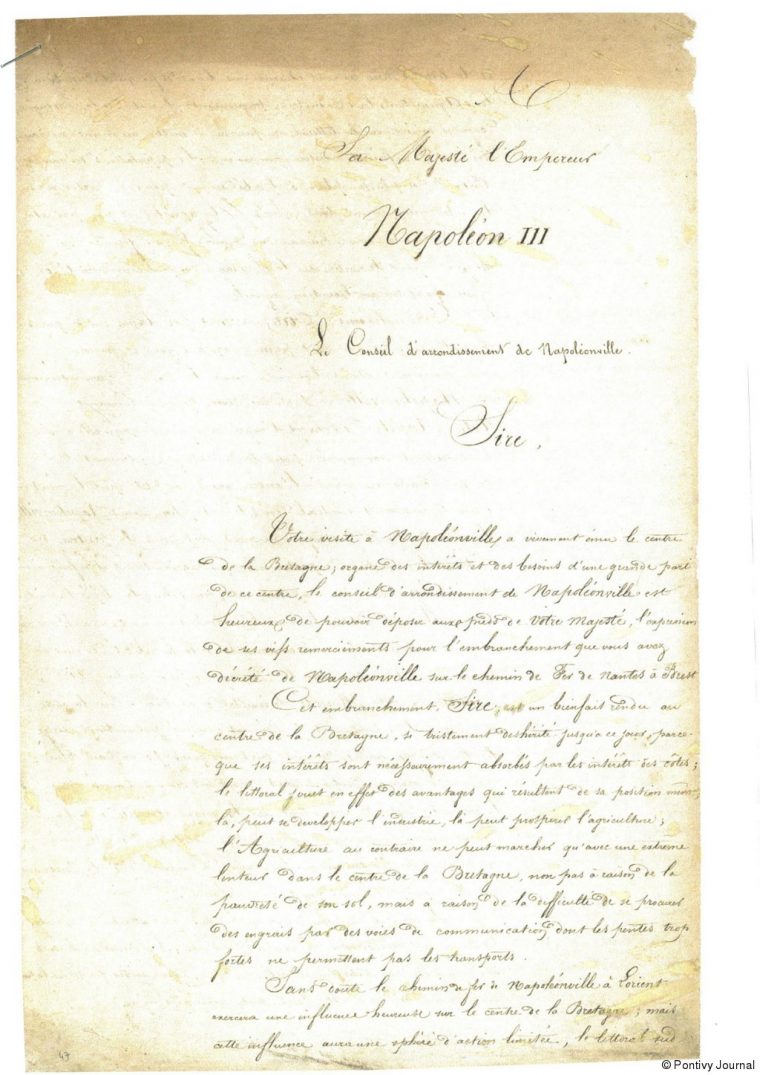 A
Sa Majesté l'Empereur
Napoléon III
Le Conseil d'arrondissement de Napoléonville.
Sire,
Votre visite à Napoléonville, a vivement ému le centre
de la Bretagne; organe des intérêts et des besoins d'une grande part
de ce centre, le conseil d'arrondissement de Napoléonville est
heureux de pouvoir déposer aux pieds de Votre Majesté, l'expression
de ses vifs remerciements pour l'embranchement que vous avez
décrété de Napoléonville sur le chemin de Fer de Nantes à Brest
Cet embranchement, Sire, est un bienfait rendu au
centre de la Bretagne, si tristement deshérité jusqu'à ce jour, parce
que ses intérêts sont nécessairement absorbés par les intérêts des côtes;
le littoral jouit en effet des avantages qui résultent de sa position
là, peut se développer l'industrie, là peut prospérer l'agriculture;
l'Agriculture au contraire ne peut marcher qu'avec une extrême
lenteur dans le centre de la Bretagne, non pas à raison de la
pauvreté de son sol, mais à raison de la difficulté de se procurer
des engrais par des voies de communication dont les pentes trop
fortes ne permettent pas les transports.
Sans doute le chemin de fer de Napoléonville à Lorient
exercera une influence heureuse sur le centre de la Bretagne; mais
cette influence aura une sphère d'action limitée, le littoral sud
47
© Pontivy Journal